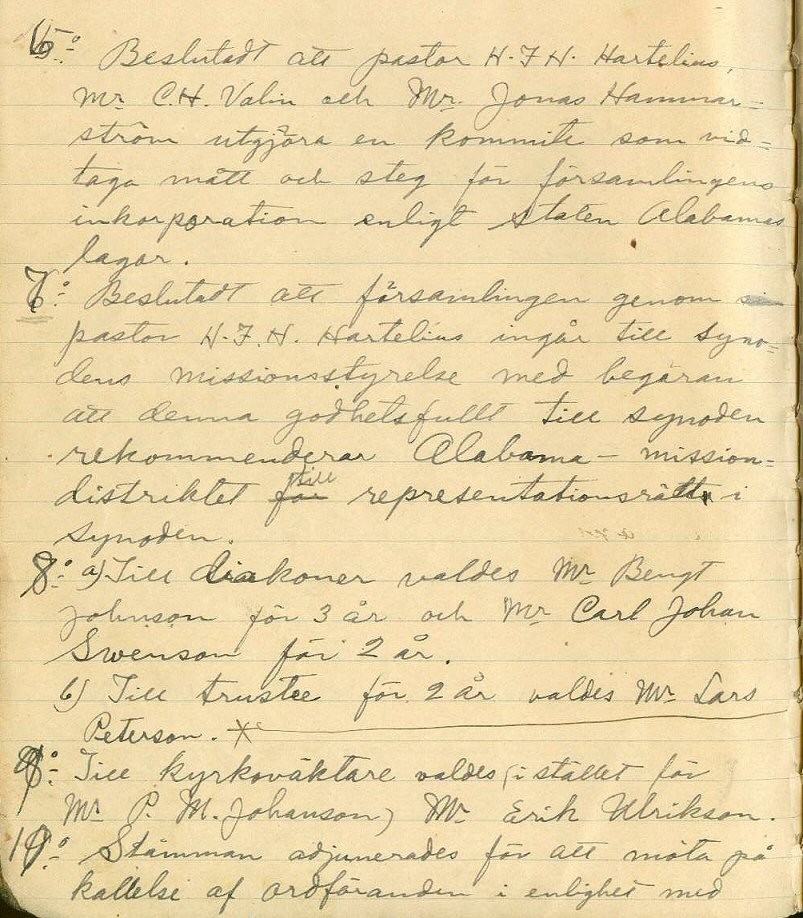 6:o Beslutadt att pastor H. F. H. Hartelius,
Mr C. H. Valin och Mr. Jonas Hammar=
ström utgjöra en kommité som vid=
taga mått och steg för församlingens
inkorporation enligt staten Alabamas
lagar.
7:o Beslutadt att församlingen genom sin
pastor H. F. H. Hartelius ingår till syno=
dens missionsstyrelse med begäran
att denna godhetsfullt till synoden
rekommenderar Alabama - mission=
till
distriktet för representationsrätt i
synoden.
8:o a) Till diakoner valdes Mr Bengt
Johnson för 3 år och Mr Carl Johan
Swenson för 2 år.
b) Till trustee för 2 år valdes Mr Lars
Peterson. X
9:o Till kyrkoväktare valdes (i stället för
Mr P. M. Johanson) Mr Erik Ulrikson.
10:o Stämman adjunerades för att möta på
kallelse af ordföranden i enlighet med